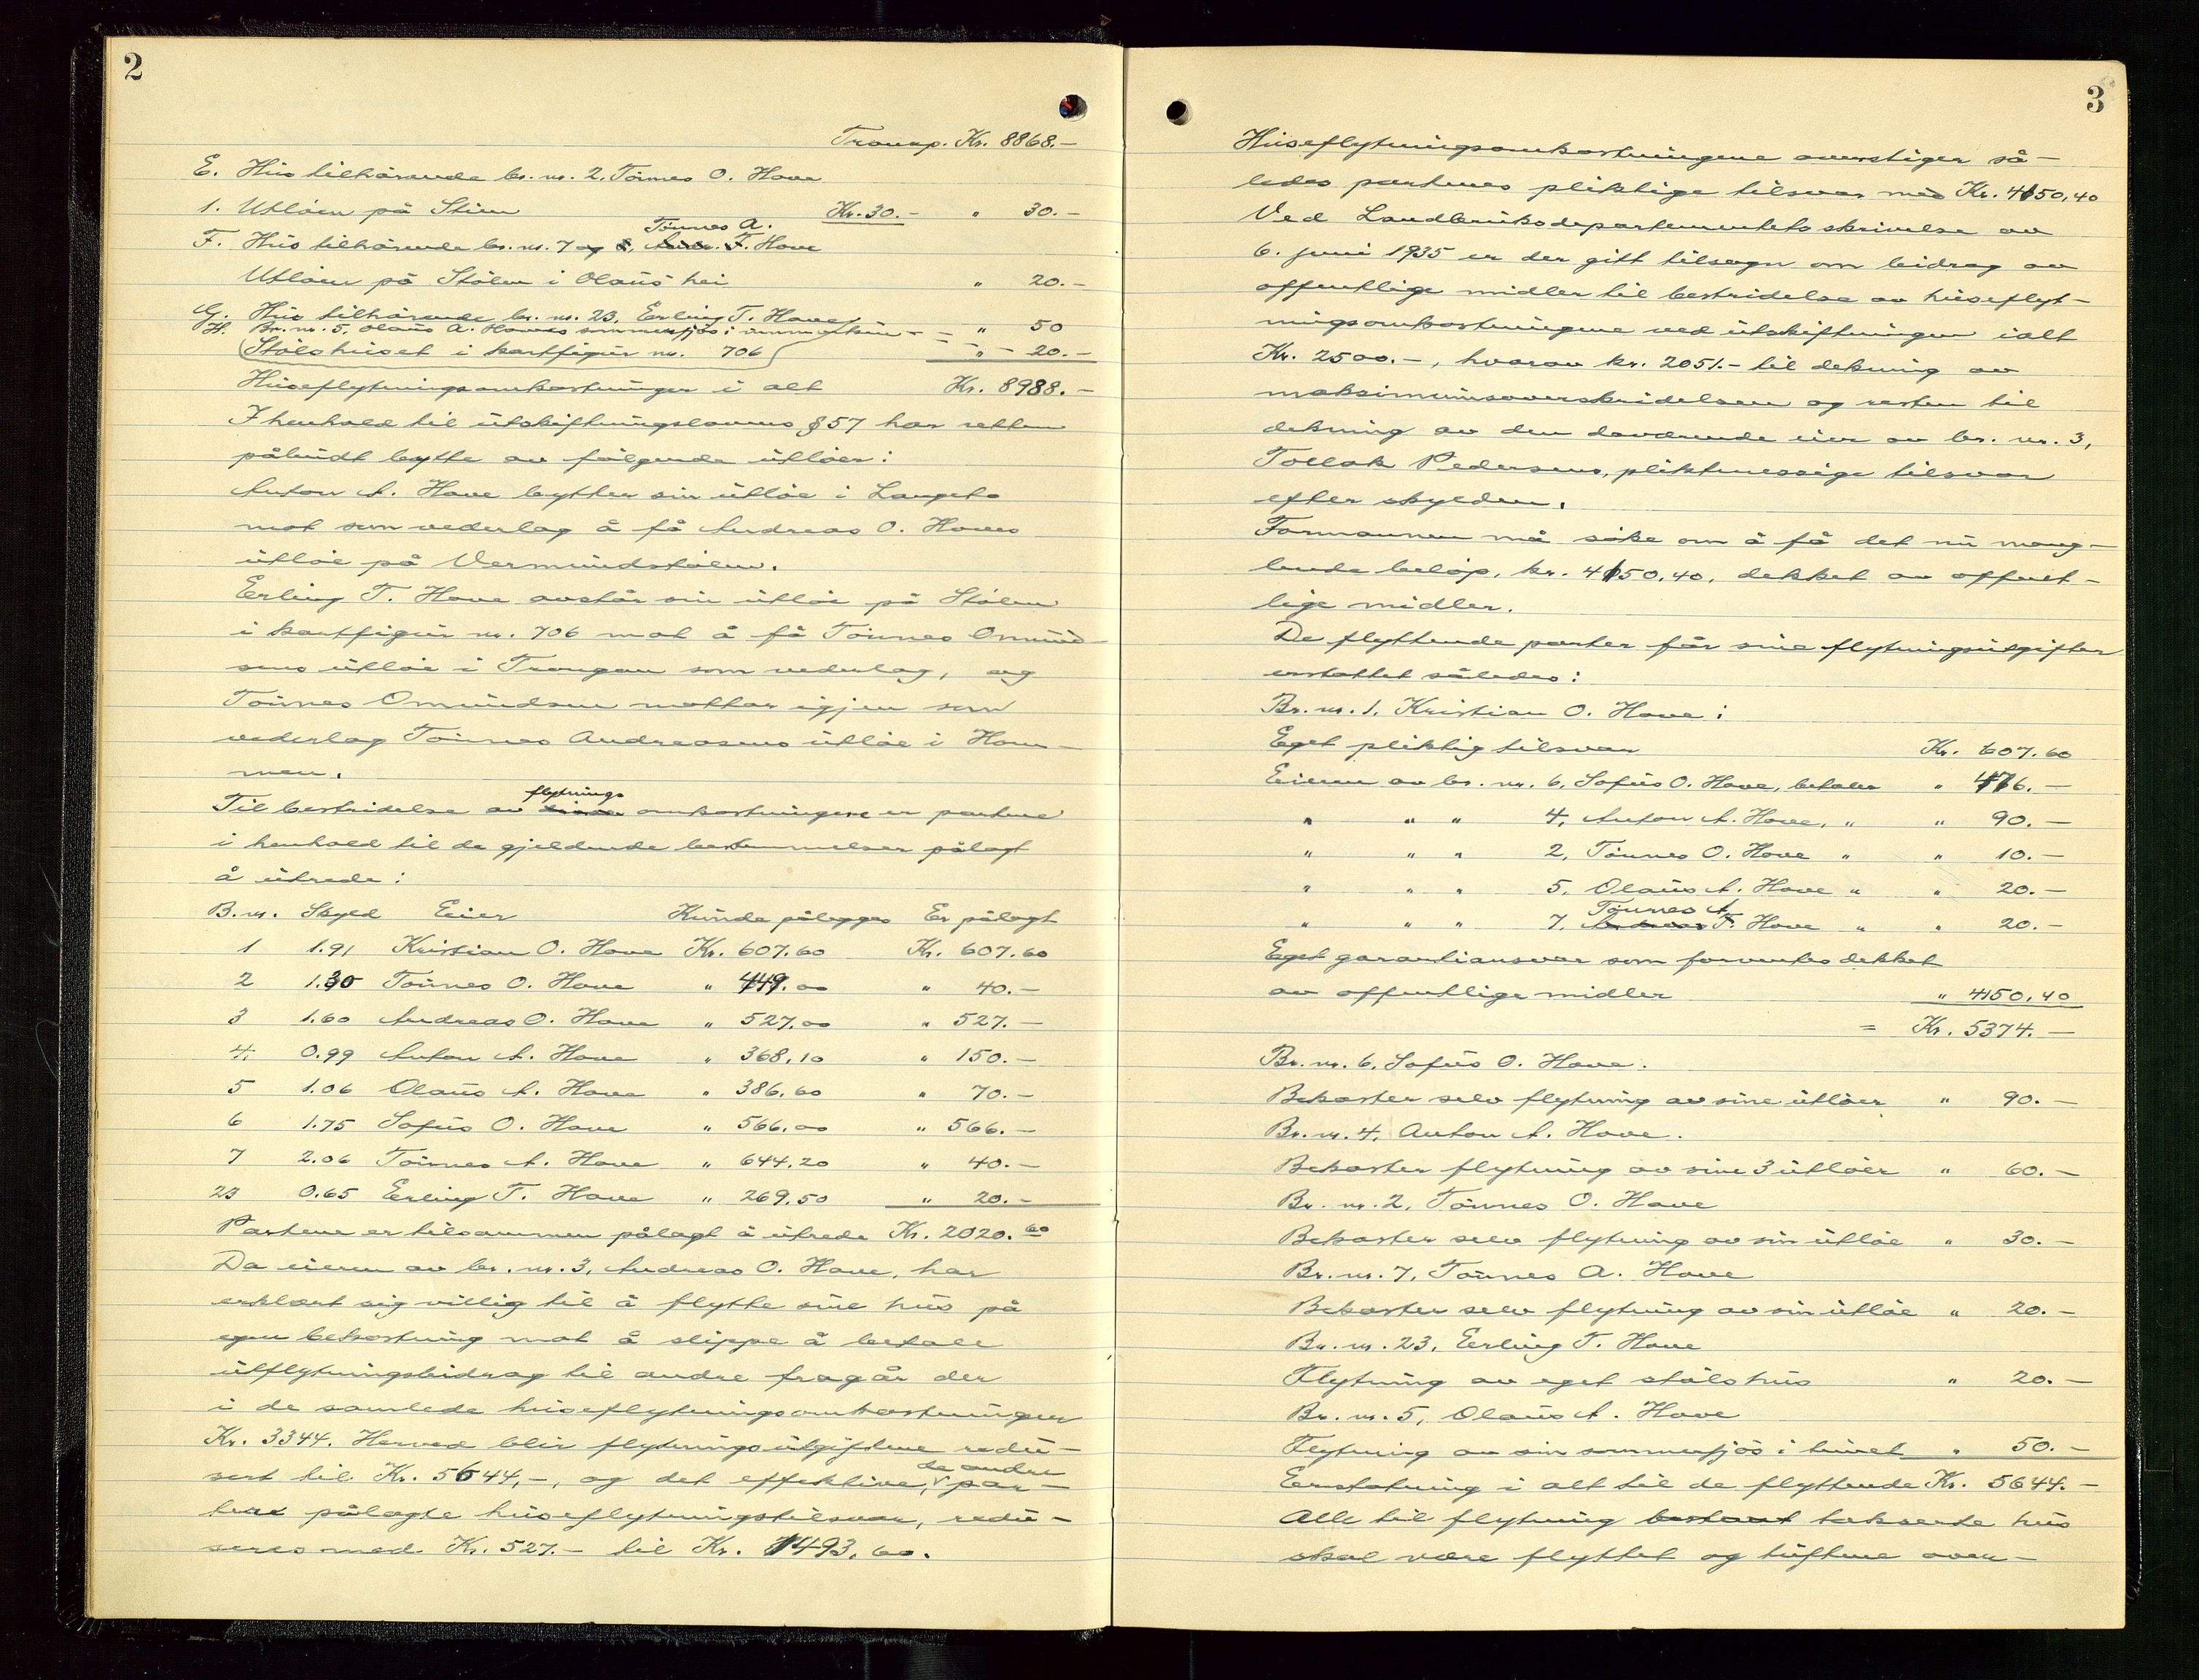 2
Transp. Kr. 8868.-
E. Hus tilhørende br. nr. 2, Tönnes O. Hove
1. Utlöen på Stien Kr. 30.- " 30.-
Tönnes A.
F. Hus tilhørende br. nr. 7 og 8, Andr. F. Hove
Utlöen på Stölen i Olaus' hei " 20.-
G. Hus tilhørende br. nr. 23, Erling T. Hove
H. Br. nr. 5, Olaus A. Hoves sommerfjös i - - " 50
(Stölshuset i kartfigur nr. 706) - " - 20.-
Huseflytningsomkostninger i alt Kr. 8988.-
I henhold til utskiftningslovens § 57 har retten
påbudt bytte av følgende utlöer:
Anton A. Hove bytter sin utlöe i Langeto
mot som vederlag å få Andreas O. Hoves
utlöe på Vermundstølen.
Erling T. Hove avstår sin utlöe på Stölen
i kartfigur nr. 706 mot å få Tönnes Omund-
sens utlöe i Trongan som vederlag, og
Tönnes Omundsen mottar igjen som
vederlag Tönnes Andreasens utlöe i Hom-
men.
flytnings
Til bestridelse av disse omkostningene er partene
i henhold til de gjeldende bestemmelser pålagt
å utrede:
B.nr. Skyld Eier Kunde pålegges Er pålagt
1 1.91 Kristian O. Hove Kr. 607.60 Kr. 607.60
2 1.30 Tönnes O. Hove " 449.00 " 40.-
3 1.60 Andreas O. Hove " 527.00 " 527.-
4. 0.99 Anton A. Hove " 368.10 " 150.-
5 1.06 Olaus A. Hove " 386.60 " 70.-
6 1.75 Sofus O. Hove " 566.00 " 566.-
7 2.06 Tönnes A. Hove " 644.20 " 40.-
23 0.65 Erling T. Hove " 269.50 " 20.-
Partene er tilsammen pålagt å utrede Kr. 2020.60
Da eieren av br. nr. 3, Andreas O. Hove, har
erklært sig villig til å flytte sine hus på
egen bekostning mot å slippe å betale
utflytningsbidrag til andre fragår der
i de samlede huseflytningsomkostninger
Kr. 3344. Herved blir flytningsutgiftene redu-
de andre
sert til Kr. 5644,-, og det effektive, par-
tene pålagte huseflytningstilsvar, redu-
seres med Kr. 527.- til Kr. 1493.60.
3
Huseflytningsomkostningene overstiger så-
ledes partenes pliktige tilsvar med Kr. 4150,40
Ved Landbruksdepartementets skrivelse av
6. juni 1935 er der gitt tilsagn om bidrag av
offentlige midler til bestridelse av huseflyt-
ningsomkostningene ved utskiftningen ialt
Kr. 2500.-, hvorav kr. 2051.- til dekning av
maksimumsoverskridelsen og resten til
dekning av den daværende eier av br. nr. 3,
Tollak Pedersens, pliktmessige tilsvar
efter skylden.
Formannen må søke om å få det nu mang-
lende beløp, kr. 4150,40, dekket av offent-
lige midler.
De flyttende parter får sine flytningsutgifter
erstattet således:
Br. nr. 1. Kristian O. Hove:
Eget pliktig tilsvar Kr. 607.60
Eieren av br. nr. 6, Sofus O. Hove, betaler " 476.-
" " " 4, Anton A. Hove, " " 90.-
" " " 2, Tönnes O. Hove " " 10.-
" " " 5, Olaus A. Hove " " 20.-
Tönnes A.
" " " 7, Andreas F. Hove " " 20.-
Eget garantiansvar som forventes dekket
av offentlige midler " 4150,40
= Kr. 5374.-
Br. nr. 6. Sofus O. Hove.
Bekoster selv flytning av sine utlöer " 90.-
Br. nr. 4, Anton A. Hove.
Bekoster flytning av sine 3 utlöer " 60.-
Br. nr. 2, Tönnes O. Hove
Bekoster selv flytning av sin utlöe " 30.-
Br. nr. 7, Tönnes A. Hove
Bekoster selv flytning av sin utlöe " 20.-
Br. nr. 23, Erling T. Hove
Flytning av eget stölshus " 20.-
Br. nr. 5, Olaus A. Hove
Flytning av sin sommerfjös i tunet " 50.-
Erstatning i alt til de flyttende Kr. 5644.-
Alle til flytning bestemt takserte hus
skal være flyttet og tuftene over-